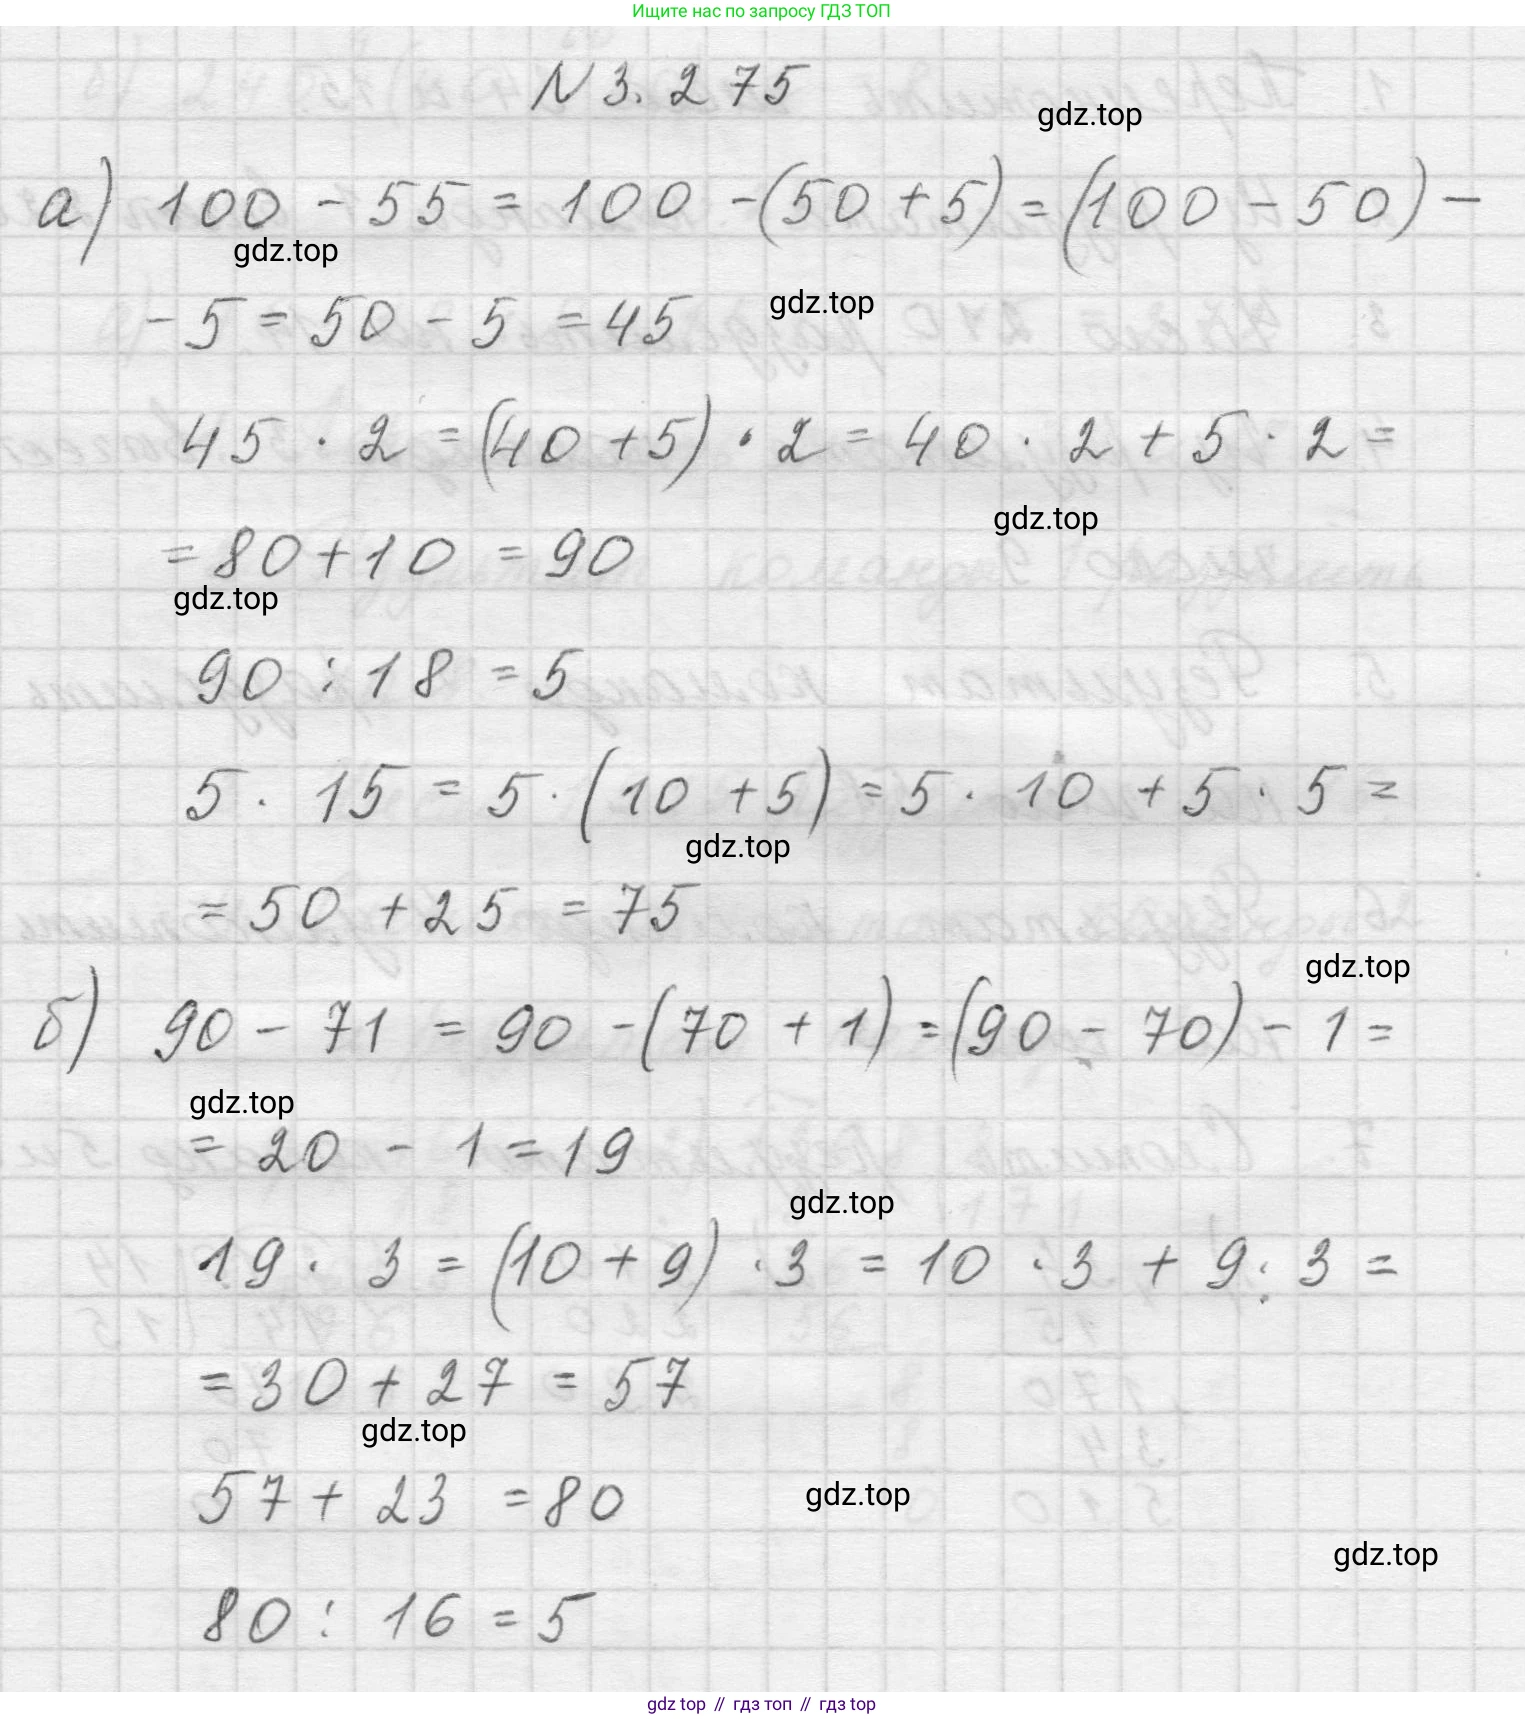 Ищите нас по запросу ГДЗ ТОП
N 3. 275
gdz.top
а) 100 - 55 = 100 - (50 + 5) = (100 - 50) -
gdz.top
- 5 = 50 - 5 = 45
gdz.top
45 · 2 = (40 + 5) · 2 = 40 · 2 + 5 · 2 =
gdz.top
= 80 + 10 = 90
gdz.top
90 : 18 = 5
5 · 15 = 5 · (10 + 5) = 5 · 10 + 5 · 5 =
gdz.top
= 50 + 25 = 75
gdz.top
б) 90 - 71 = 90 - (70 + 1) = (90 - 70) - 1 =
gdz.top
= 20 - 1 = 19
gdz.top
19 · 3 = (10 + 9) · 3 = 10 · 3 + 9 · 3 =
= 30 + 27 = 57
gdz.top
57 + 23 = 80
gdz.top
gdz.top
80 : 16 = 5
gdz top // гдз топ // гдз top